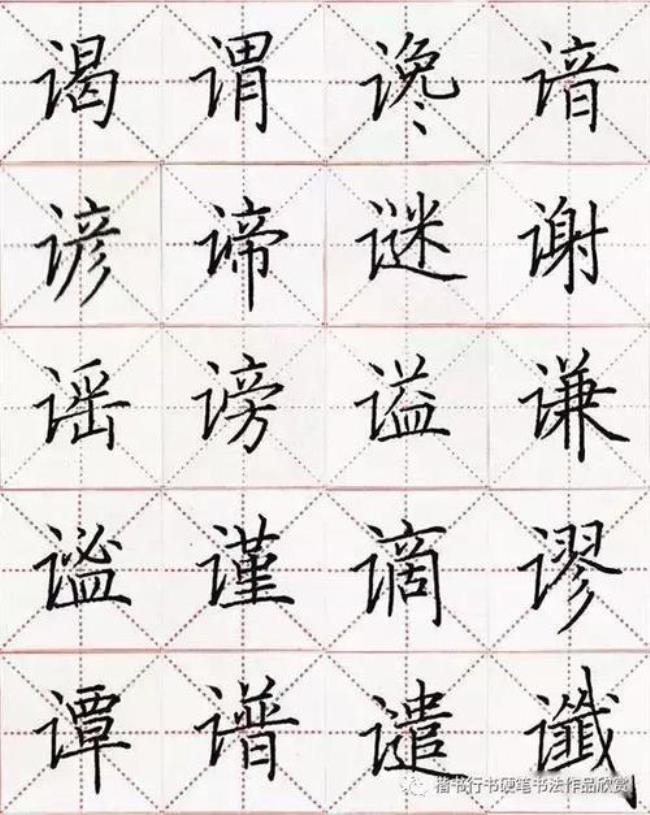 谒谓谗谙
谚谛谜谢
谣谤谥谦
谧谨谪谬
谭谱谴谶
楷书行书硬笔书法作品欣赏